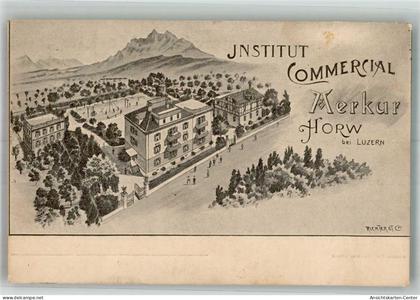 JNSTITUT
COMMERCIAL
Merkur
HORW
bei LUZERN
RICHTER & Co
Ansichtskarten-Center